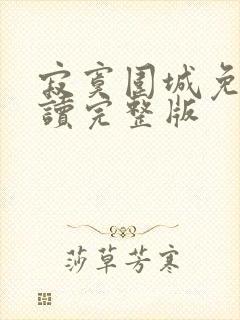 寂寞圍城免
讀完整版
莎草芳寒